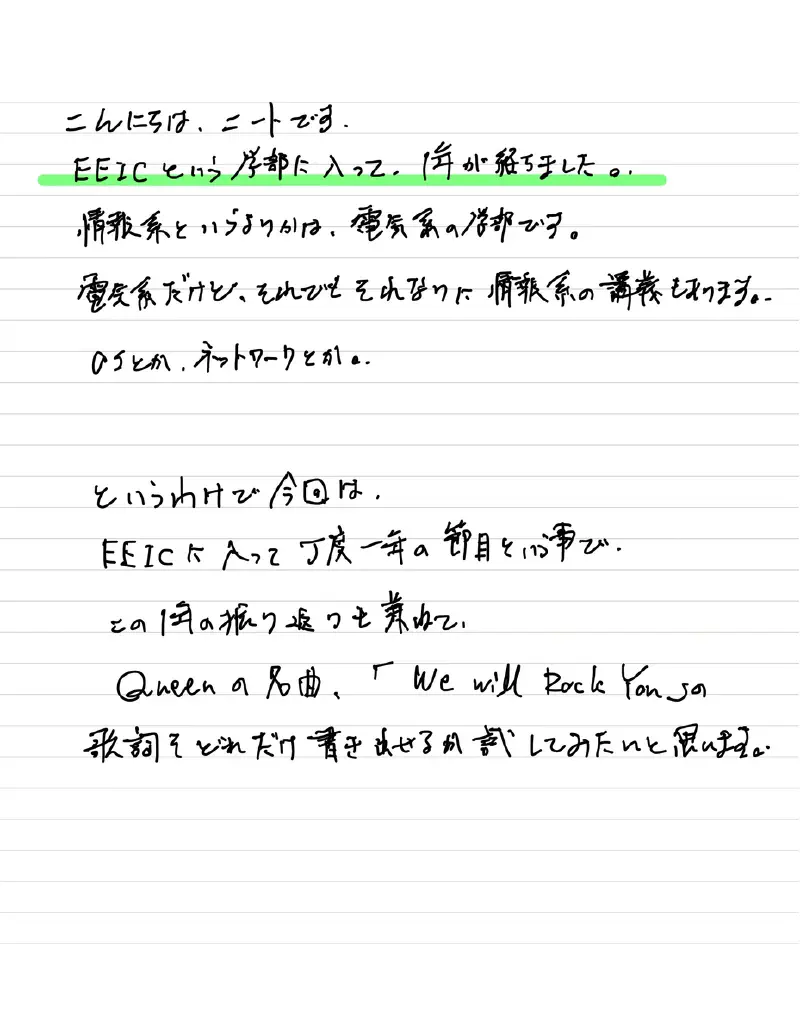 こんにちは、ニートです.
EEICという学部に入って、1年が経ちました。.
情報系というよりかは、電気系の学部です。
電気系だけど、それでもそれなりに情報系の講義もあります。
OSとか、ネットワークとか。
というわけで今回は、
EEICに入って丁度一年の節目という事で、
この1年の振り返りも兼ねて、
Queenの名曲、「We will Rock You」の
歌詞をどれだけ書き出せるか試してみたいと思います。